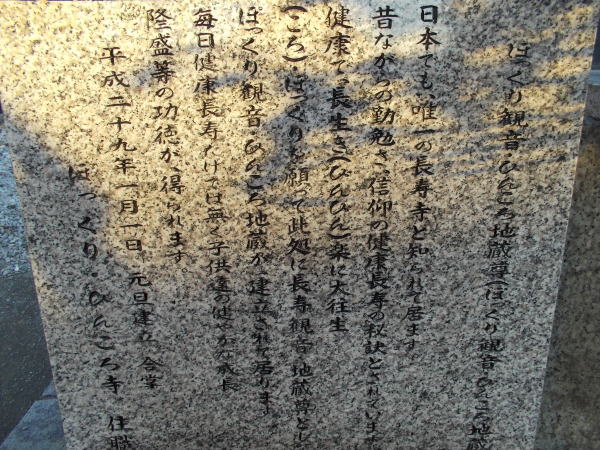 ぽっくり観音・ぴんころ地蔵尊(ぽっくり観音・ぴんころ地蔵
日本でも、唯一の長寿寺と知られて居ます
昔ながらの勤勉さ、信仰の健康長寿の秘訣とされています
健康で、長生き(ぴんぴん)楽に大往生
(ころ)ぽっくりを願って此処に長寿観音・地蔵尊とし
ぽっくり観音・ぴんころ地蔵が、建立されて居ります
毎日健康長寿だけでは無く子供達の健やかな成長
隆盛等の功徳が得られます。
平成二十九年一月一日 元旦建立 合掌
ぽっくり・ぴんころ寺 住職